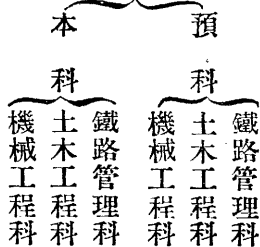 預科
鐵路管理科
土木工程科
機械工程科
本科
鐵路管理科
土木工程科
機械工程科